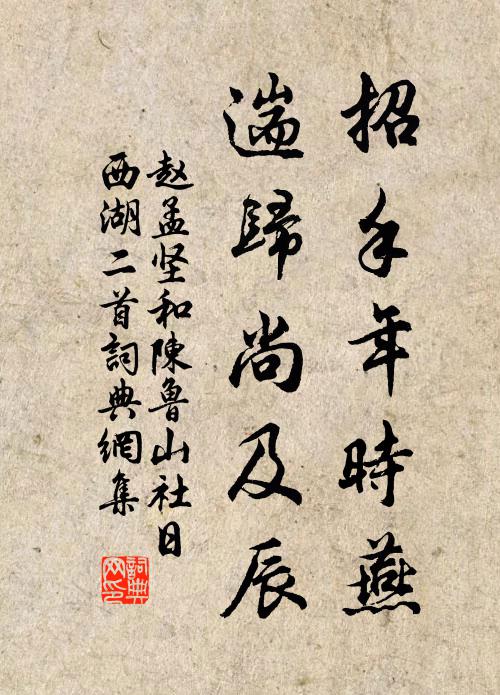 招手年時燕
遄歸尚及辰
赵孟坚和陳魯山社日
西湖二首詞典網集
詞典
网印